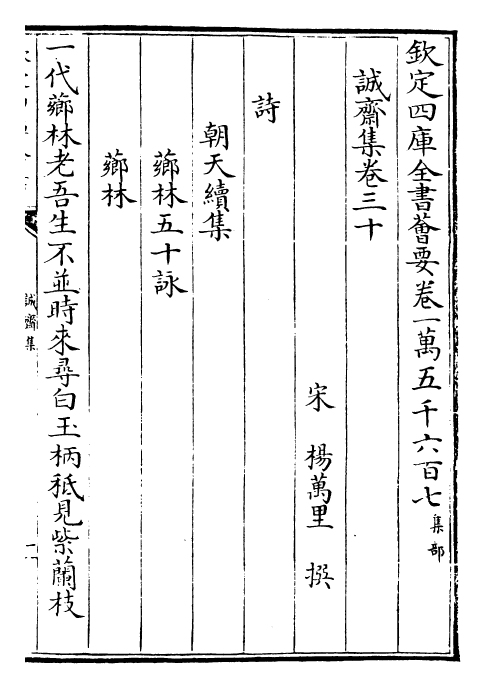 欽定四庫全書薈要卷一萬五千六百七 集部
誠齋集卷三十
宋 楊萬里 撰
詩
朝天續集
薌林五十詠
薌林
一代薌林老吾生不並時來尋白玉柄秪見紫蘭枝
誠齋集
一